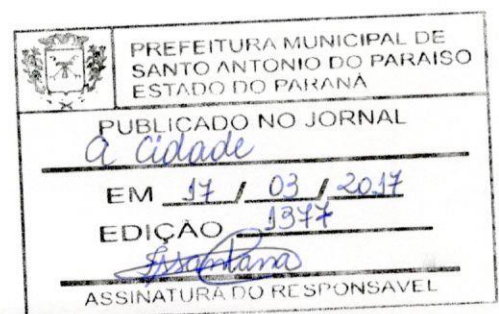 PREFEITURA MUNICIPAL DE
SANTO ANTONIO DO PARAISO
ESTADO DO PARANÁ
PUBLICADO NO JORNAL
A Cidade
EM 17 / 03 / 2017
EDIÇÃO 1377
ASSINATURA DO RESPONSAVEL